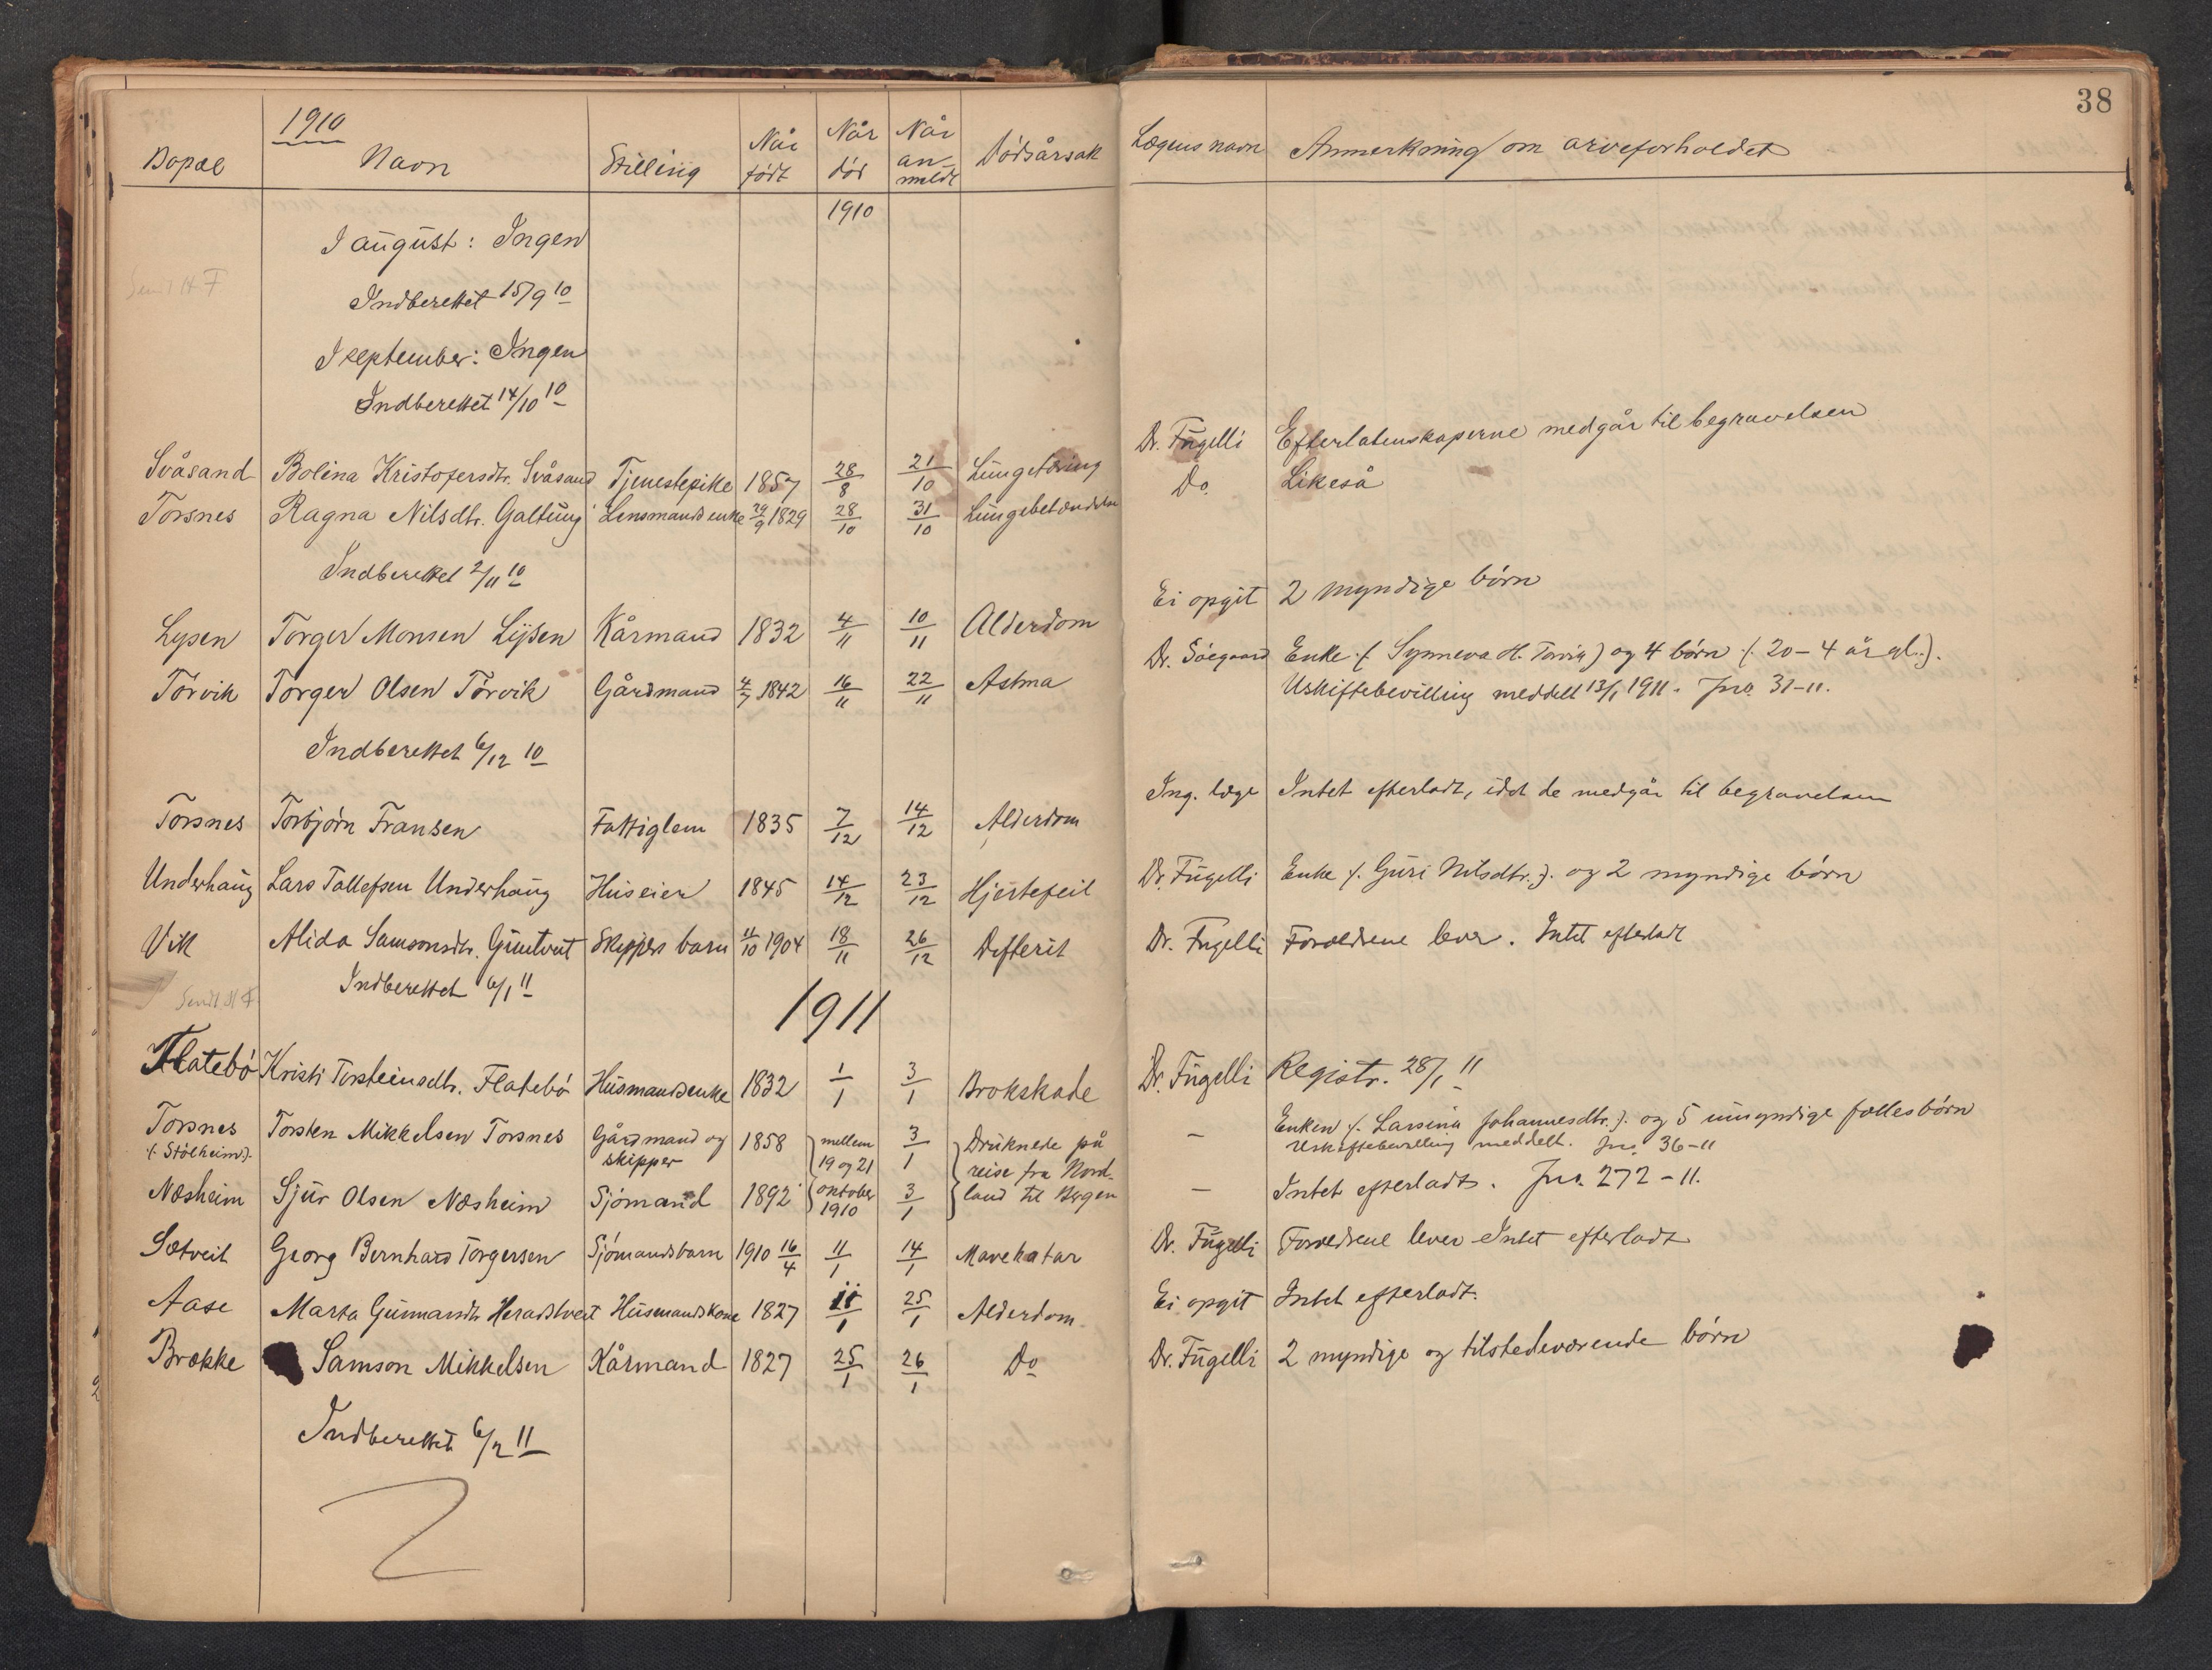 38
1910
Bopæl Navn Stilling Når født Når död Når anmeldt Dödsårsak Lægens navn Anmerkning om arveforholdet
1910
I august: Ingen
Indberettet 15/9 10
I september: Ingen
Indberettet 14/10 10
Svåsand Bolina Kristofersdtr. Svåsand Tjenestepike 1857 28/8 21/10 Lungetæring Dr. Fugelli Efterlatenskaperne medgår til begravelsen
Torsnes Ragna Nilsdtr. Galtung Lensmands enke 29/9 1829 28/10 31/10 Lungebetændelse Do. Likeså
Indberettet 2/11 10
Lysen Torger Monsen Lysen Kårmand 1832 4/11 10/11 Alderdom Ei opgit 2 myndige börn
Torvik Torger Olsen Torvik Gårdmand 4/7 1842 16/11 22/11 Astma Dr. Söegaard Enke (: Synneva H. Torvig) og 4 börn (: 20-4 år gl.:).
Uskiftebevilling meddelt 13/1 1911. Jno. 31-11.
Indberettet 6/12 10
Torsnes Torbjörn Fransen Fattiglem 1835 7/12 14/12 Alderdom Ing. læge Intet efterladt, idet de medgår til begravelsen
Underhaug Lars Tollefsen Underhaug Huseier 1845 14/12 23/12 Hjertefeil Dr. Fugelli Enke (: Guri Nilsdtr.:) og 2 myndige börn
Vik Alida Samsonsdtr. Guntveit Skippers barn 11/10 1904 18/11 26/12 Difterit Dr. Fugelli Forældrene lever. Intet efterladt
Indberettet 6/1 11
1911
Flatebö Kristi Torsteinsdtr. Flatebö Husmandsenke 1832 1/1 3/1 Brokskade Dr. Fugelli Registr. 28/1 11
Torsnes (: Stölheim:). Torsten Mikkelsen Torsnes Gårdmand og skipper 1858 mellem 19 og 21 3/1 Druknede på reise fra Nord- — Enken (: Larsina Johannesdtr.:) og 5 umyndige fællesbörn
Uskiftebevilling meddelt. Jno. 36-11
Næsheim Sjur Olsen Næsheim Sjömand 1892 oktober 1910 3/1 land til Bergen — Intet efterladt. Jno. 272-11.
Sætveit Georg Bernhard Torgersen Sjömandsbarn 1910 16/4 11/1 14/1 Mavekatar Dr. Fugelli Forældrene lever Intet efterladt
Aase Marta Gunnarsdtr. Heradstveit Husmandskone 1827 11/1 25/1 Alderdom Ei opgit Intet efterladt.
Brække Samson Mikkelsen Kårmand 1827 25/1 26/1 Do Dr. Fugelli 2 myndige og tilstedeværende börn
Indberettet 6/2 11